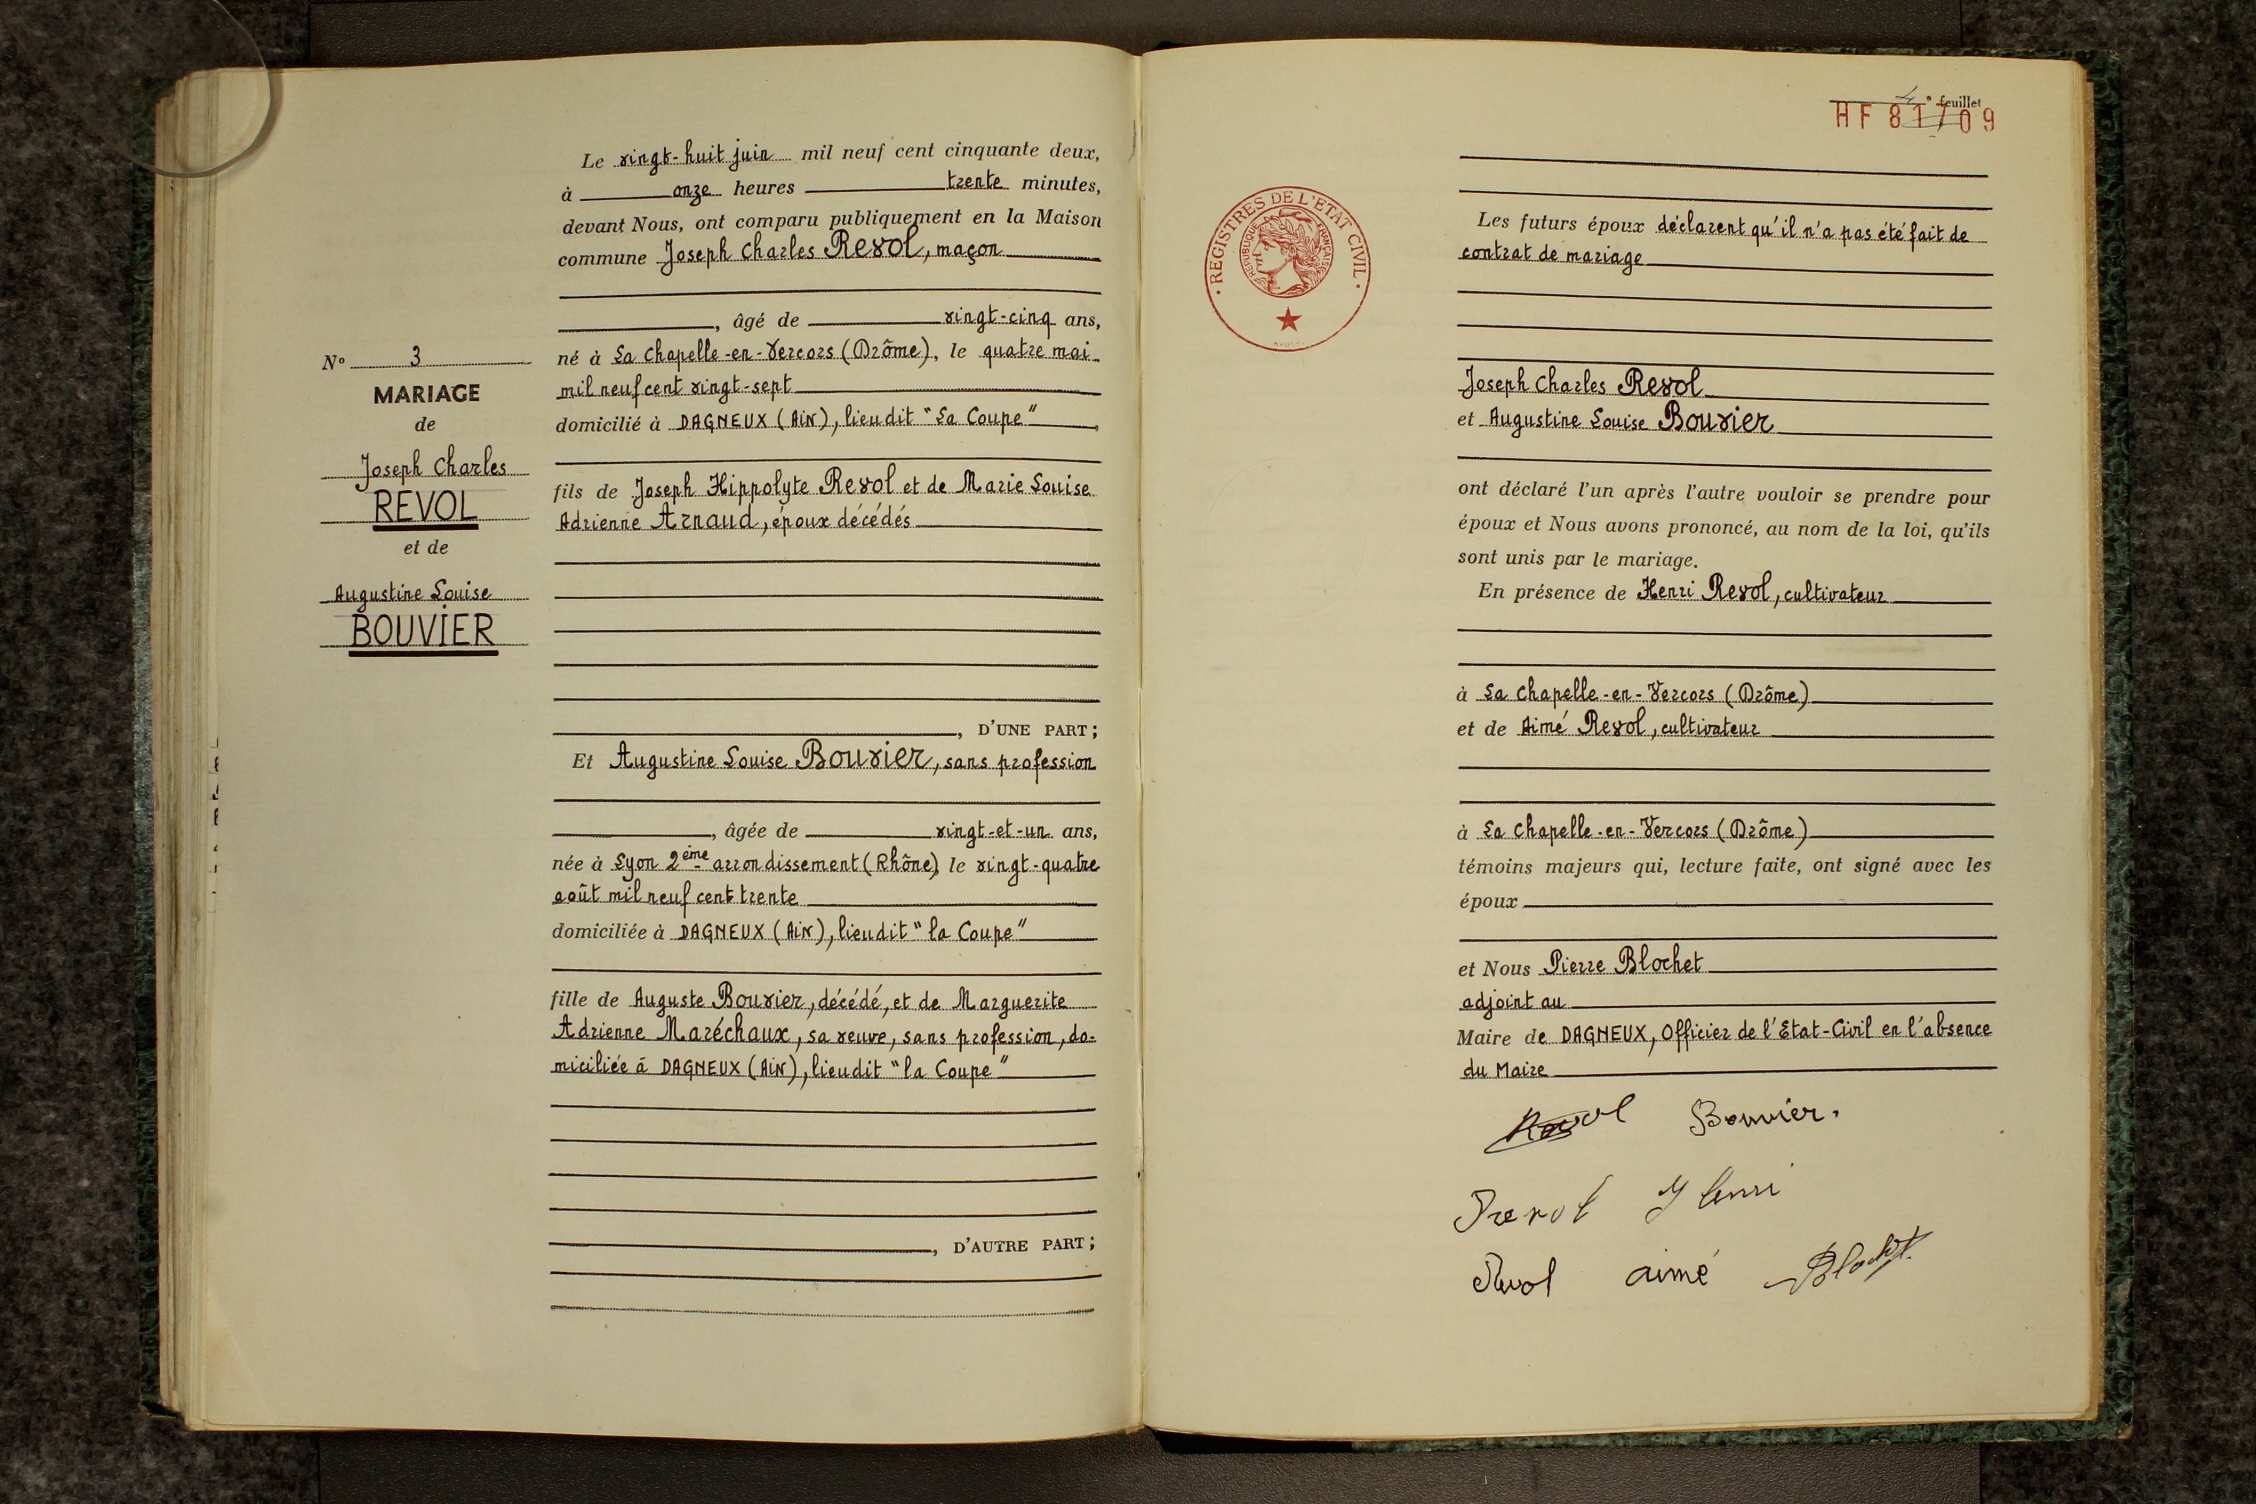 Le vingt-huit juin mil neuf cent cinquante deux,
à onze heures trente minutes,
devant Nous, ont comparu publiquement en la Maison
commune Joseph Charles Revol, maçon
, âgé de vingt-cinq ans,
né à La Chapelle-en-Vercors (Drôme), le quatre mai
mil neuf cent vingt-sept
domicilié à DAGNEUX (AIN), lieudit "La Coupe",
fils de Joseph Hippolyte Revol et de Marie Louise
Adrienne Arnaud, époux décédés
, D'UNE PART;
Et Augustine Louise Bouvier, sans profession
, âgée de vingt-et-un ans,
née à Lyon 2ème arrondissement (Rhône), le vingt-quatre
août mil neuf cent trente
domiciliée à DAGNEUX (AIN), lieudit "la Coupe"
fille de Auguste Bouvier, décédé, et de Marguerite
Adrienne Maréchaux, sa veuve, sans profession, do-
miciliée à DAGNEUX (AIN), lieudit "la Coupe"
, D'AUTRE PART;
N° 3
MARIAGE
de
Joseph Charles
REVOL
et de
Augustine Louise
BOUVIER
4e feuillet
HF 81709
REGISTRES DE L'ETAT CIVIL
REPUBLIQUE FRANÇAISE
Les futurs époux déclarent qu'il n'a pas été fait de
contrat de mariage
Joseph Charles Revol
et Augustine Louise Bouvier
ont déclaré l'un après l'autre vouloir se prendre pour
époux et Nous avons prononcé, au nom de la loi, qu'ils
sont unis par le mariage.
En présence de Henri Revol, cultivateur
à La Chapelle-en-Vercors (Drôme)
et de Aimé Revol, cultivateur
à La Chapelle-en-Vercors (Drôme)
témoins majeurs qui, lecture faite, ont signé avec les
époux
et Nous Pierre Blochet
adjoint au
Maire de DAGNEUX, Officier de l'Etat-Civil en l'absence
du Maire
Revol Bouvier.
Revol Henri
Revol aimé Blochet